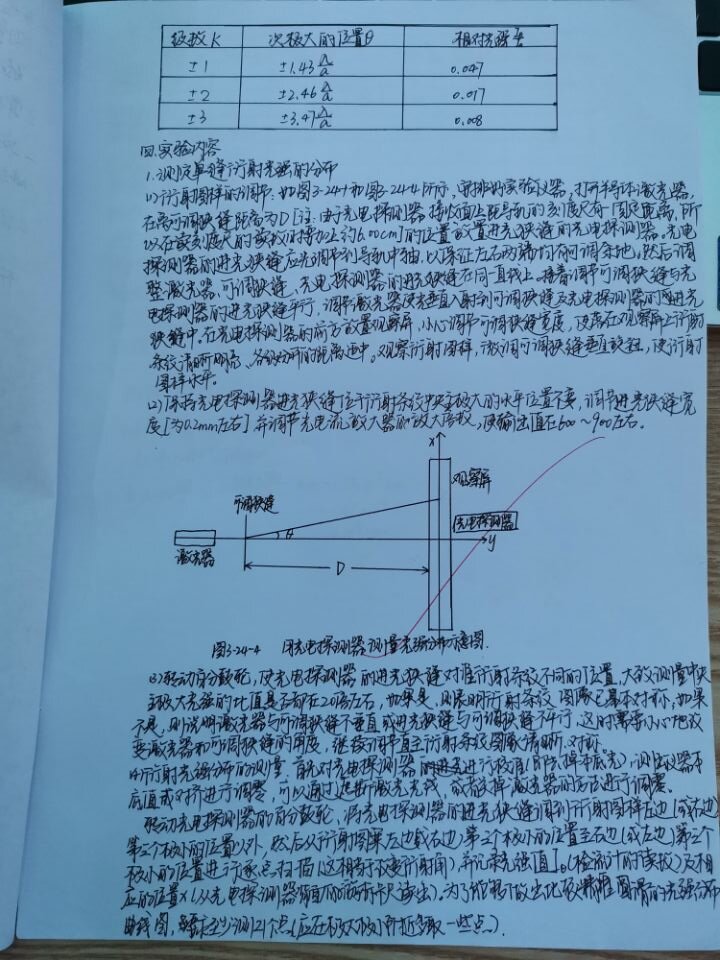 级数K 次极大的位置θ 相对光强
±1 ±1.43 λ/a 0.047
±2 ±2.46 λ/a 0.017
±3 ±3.47 λ/a 0.008
四.实验内容
1.测定单缝衍射光强的分布
(1)衍射图样的调节.如图3-24-1和图3-24-4所示,安排好实验仪器,打开半导体激光器,
在离可调狭缝距离为D[注:由于光电探测器接收面与导轨的刻度尺有一固定距离,所
以在读刻度大的读数时要加上约6.00cm]的位置放置进光狭缝和光电探测器.光电
探测器的进光狭缝应先调节到导轨中轴,以保证左右两端均有可调余地,然后调
整激光器、可调狭缝、光电探测器的进光狭缝在同一直线上.接着调节可调狭缝与光
电探测器的进光狭缝平行,调节激光器使光垂直入射到可调狭缝及光电探测器的进光
狭缝中.在光电探测器的前方放置观察屏,小心调节可调狭缝宽度,使落在观察屏上衍射
条纹清晰明亮、各级分开的距离适中.观察衍射图样,微调可调狭缝垂直旋钮,使衍射
图样水平.
(2)保持光电探测器进光狭缝位于衍射条纹中央主极大的水平位置不变,调节进光狭缝宽
度[为0.2mm左右]并调节光电流放大器的放大倍数,使输出值在600~900左右.
x
观察屏
可调狭缝
光电探测器
θ
y
激光器
D
图3-24-4 用光电探测器测量光强分布示意图.
(3)转动百分鼓轮,使光电探测器的进光狭缝对准衍射条纹不同的位置,大致测量中央
主极大光强的比值是否都在20倍左右,如果是,则表明衍射条纹图像已基本对称,如果
不是,则说明激光器与可调狭缝不垂直或进光狭缝与可调狭缝不平行,这时需要小心地改
变激光器和可调狭缝的角度,继续调节直至衍射条纹图像清晰、对称.
(4)衍射光强分布的测量.首先对光电探测器的进光进行校准(即扣掉本底光),测出仪器本
底值或对齐进行调零,可以通过遮断激光光线,或者关掉激光器的方式进行调零.
转动光电探测器的百分鼓轮,将光电探测器的进光狭缝调到衍射图样左边(或右边)
第三个极小的位置以外,然后从衍射图案左边(或右边)第三个极小的位置至右边(或左边)第三个
极小的位置进行逐点扫描(这相当于改变衍射角),并记录光强值I。(检流计的读数)及相
应的位置x(从光电探测器下面的游标卡尺读出).为了能够做出比较精准圆滑的光强分布
曲线图,要求至少测21个点(应在极大极小附近多取一些点).